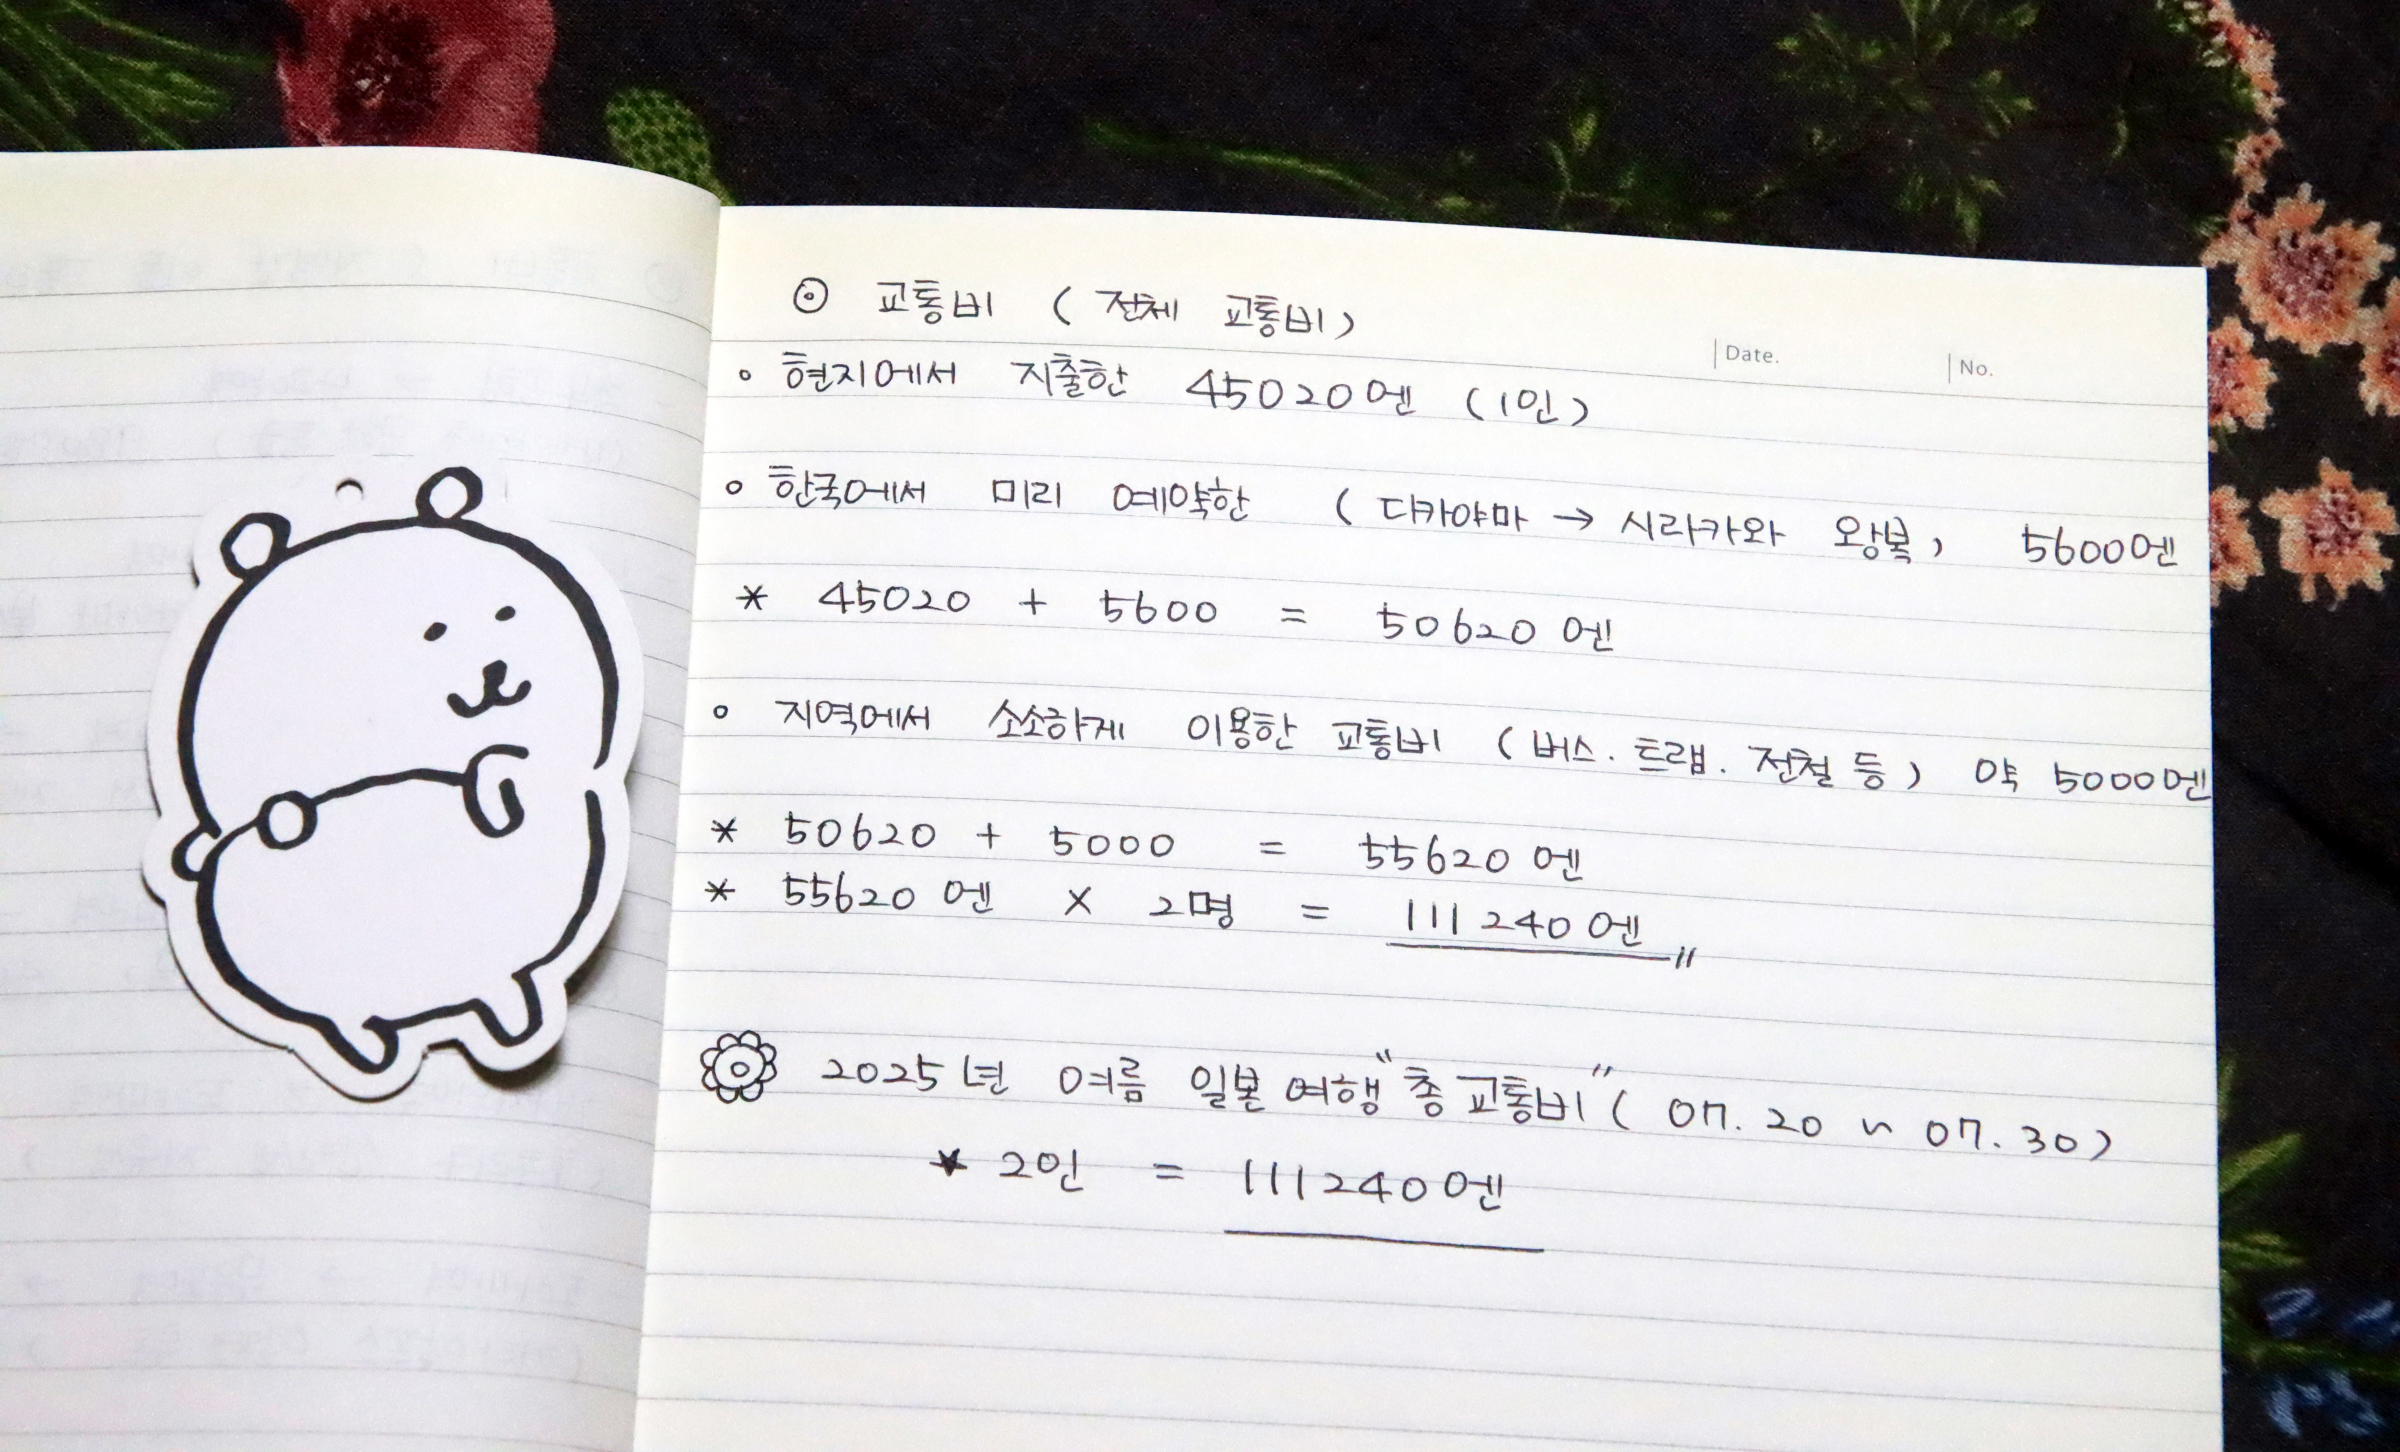 ⊙ 교통비 ( 전체 교통비 )
Date. No.
∘ 현지에서 지출한 45020엔 (1인)
∘ 한국에서 미리 예약한 ( 다카야마 → 시라카와 왕복, 5600엔
* 45020 + 5600 = 50620 엔
∘ 지역에서 소소하게 이용한 교통비 ( 버스. 트램. 전철 등 ) 약 5000엔
* 50620 + 5000 = 55620 엔
* 55620 엔 × 2명 = 111240 엔 〃
2025년 여름 일본 여행 "총 교통비" ( 07. 20 ~ 07. 30 )
★ 2인 = 111240 엔